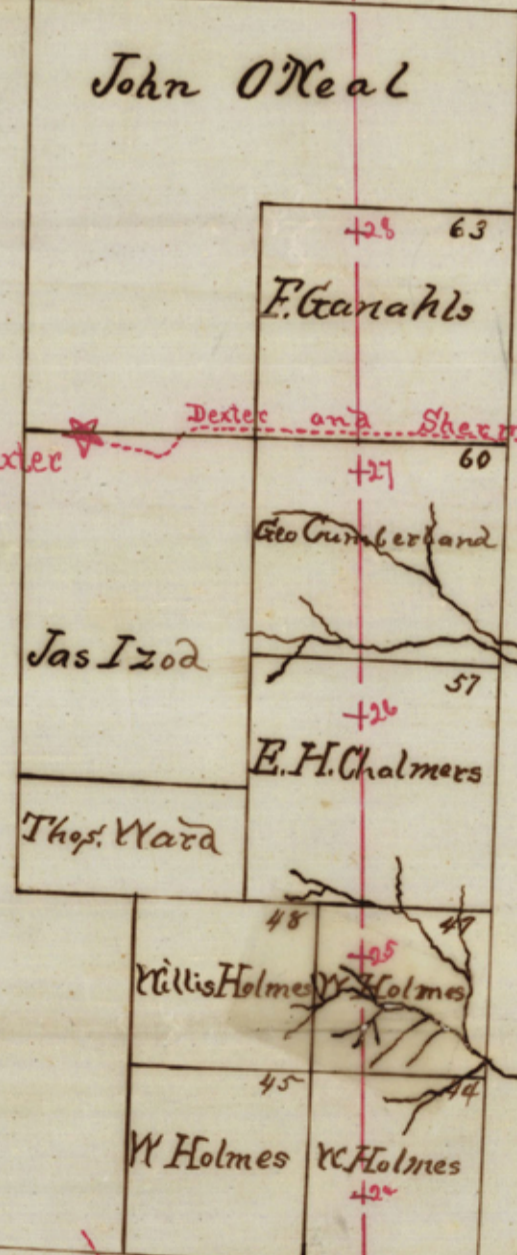 John O'Neal
28 63
F. Ganahls
Dexter and Sherm
xter
60
27
Geo Cumberland
Jas Izod
57
26
E. H. Chalmers
Thos. Ward
48 47
25
Willis Holmes W Holmes
45 44
W Holmes W. Holmes
24